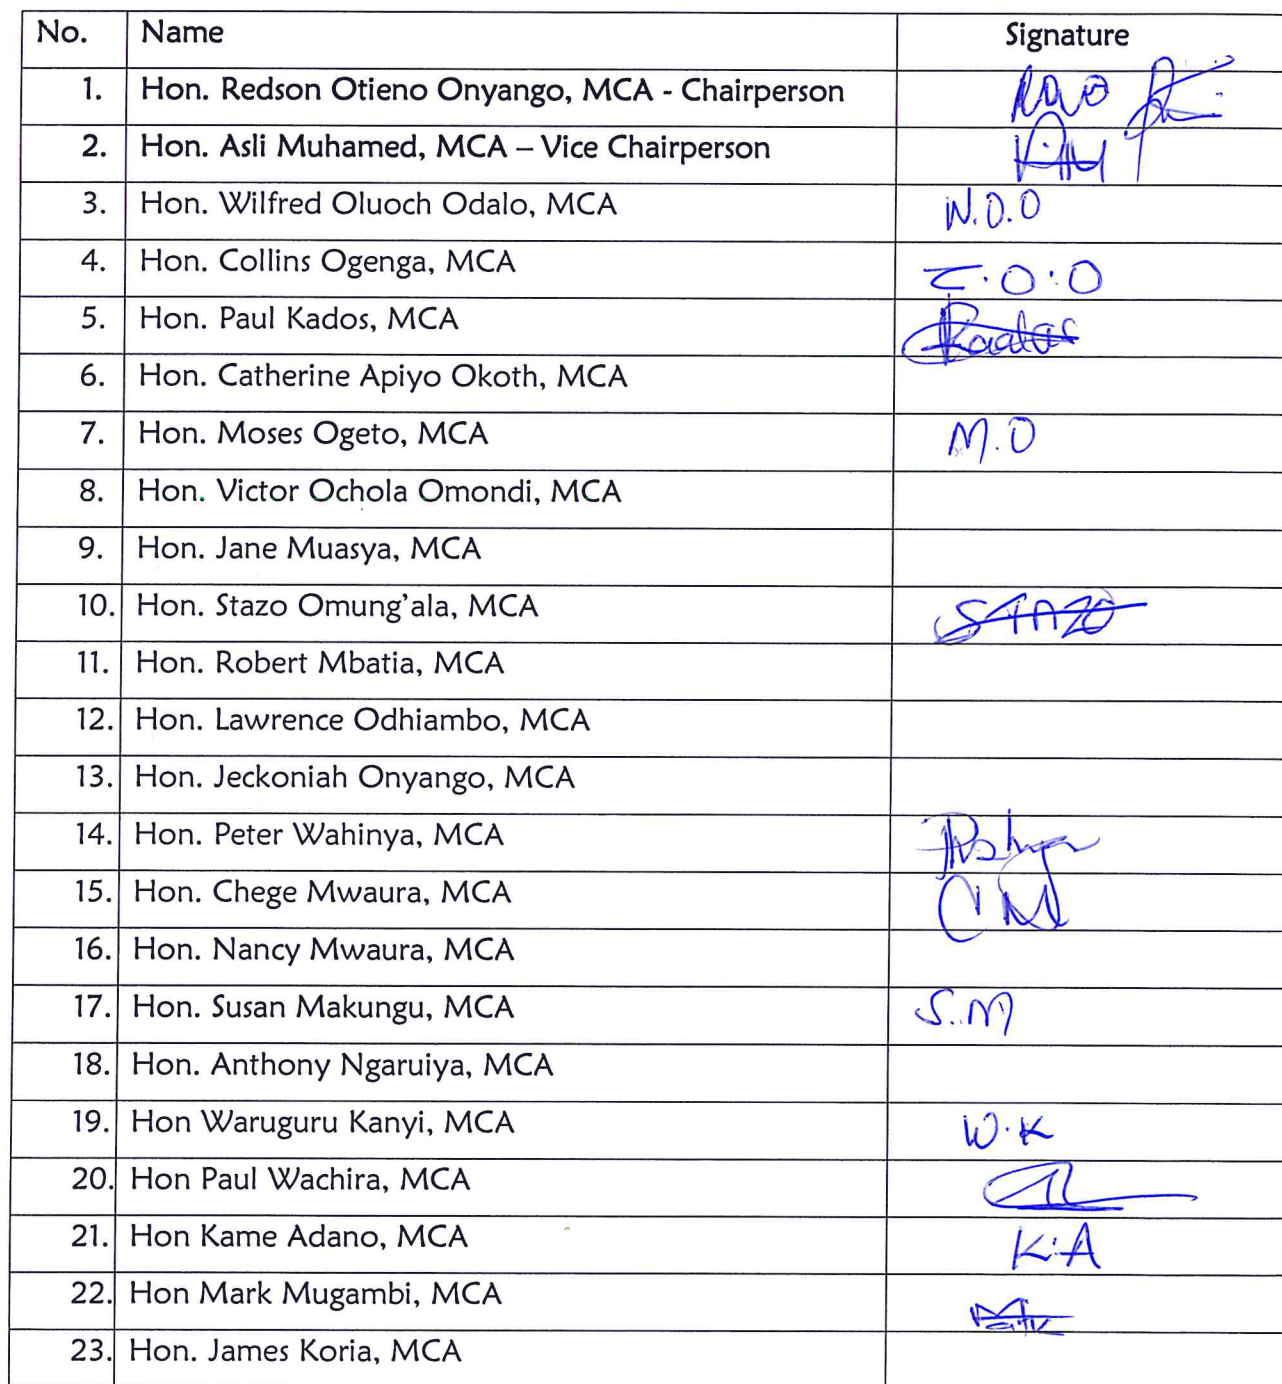 No. Name Signature
1. Hon. Redson Otieno Onyango, MCA - Chairperson
2. Hon. Asli Muhamed, MCA – Vice Chairperson
3. Hon. Wilfred Oluoch Odalo, MCA W.O.O
4. Hon. Collins Ogenga, MCA C.O.O
5. Hon. Paul Kados, MCA Kados
6. Hon. Catherine Apiyo Okoth, MCA
7. Hon. Moses Ogeto, MCA M.O
8. Hon. Victor Ochola Omondi, MCA
9. Hon. Jane Muasya, MCA
10. Hon. Stazo Omung'ala, MCA STAZO
11. Hon. Robert Mbatia, MCA
12. Hon. Lawrence Odhiambo, MCA
13. Hon. Jeckoniah Onyango, MCA
14. Hon. Peter Wahinya, MCA
15. Hon. Chege Mwaura, MCA CM
16. Hon. Nancy Mwaura, MCA
17. Hon. Susan Makungu, MCA S.M
18. Hon. Anthony Ngaruiya, MCA
19. Hon Waruguru Kanyi, MCA W.K
20. Hon Paul Wachira, MCA
21. Hon Kame Adano, MCA K.A
22. Hon Mark Mugambi, MCA
23. Hon. James Koria, MCA